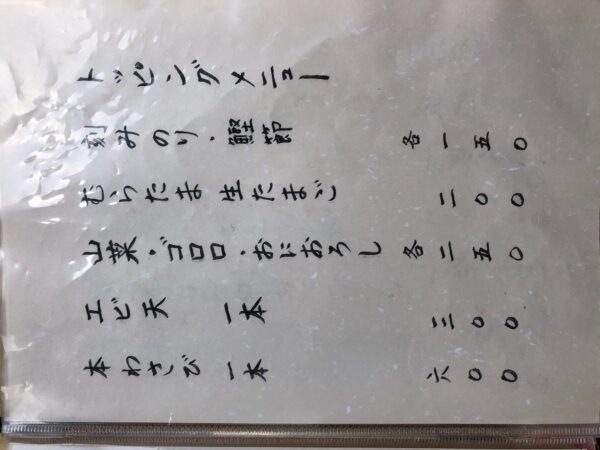 トッピングメニュー
刻みのり・鰹節 各一五〇
むらたま生たまご 二〇〇
山菜・ゴロロ・おにおろし 各二五〇
エビ天 一本 三〇〇
本わさび 一本 六〇〇